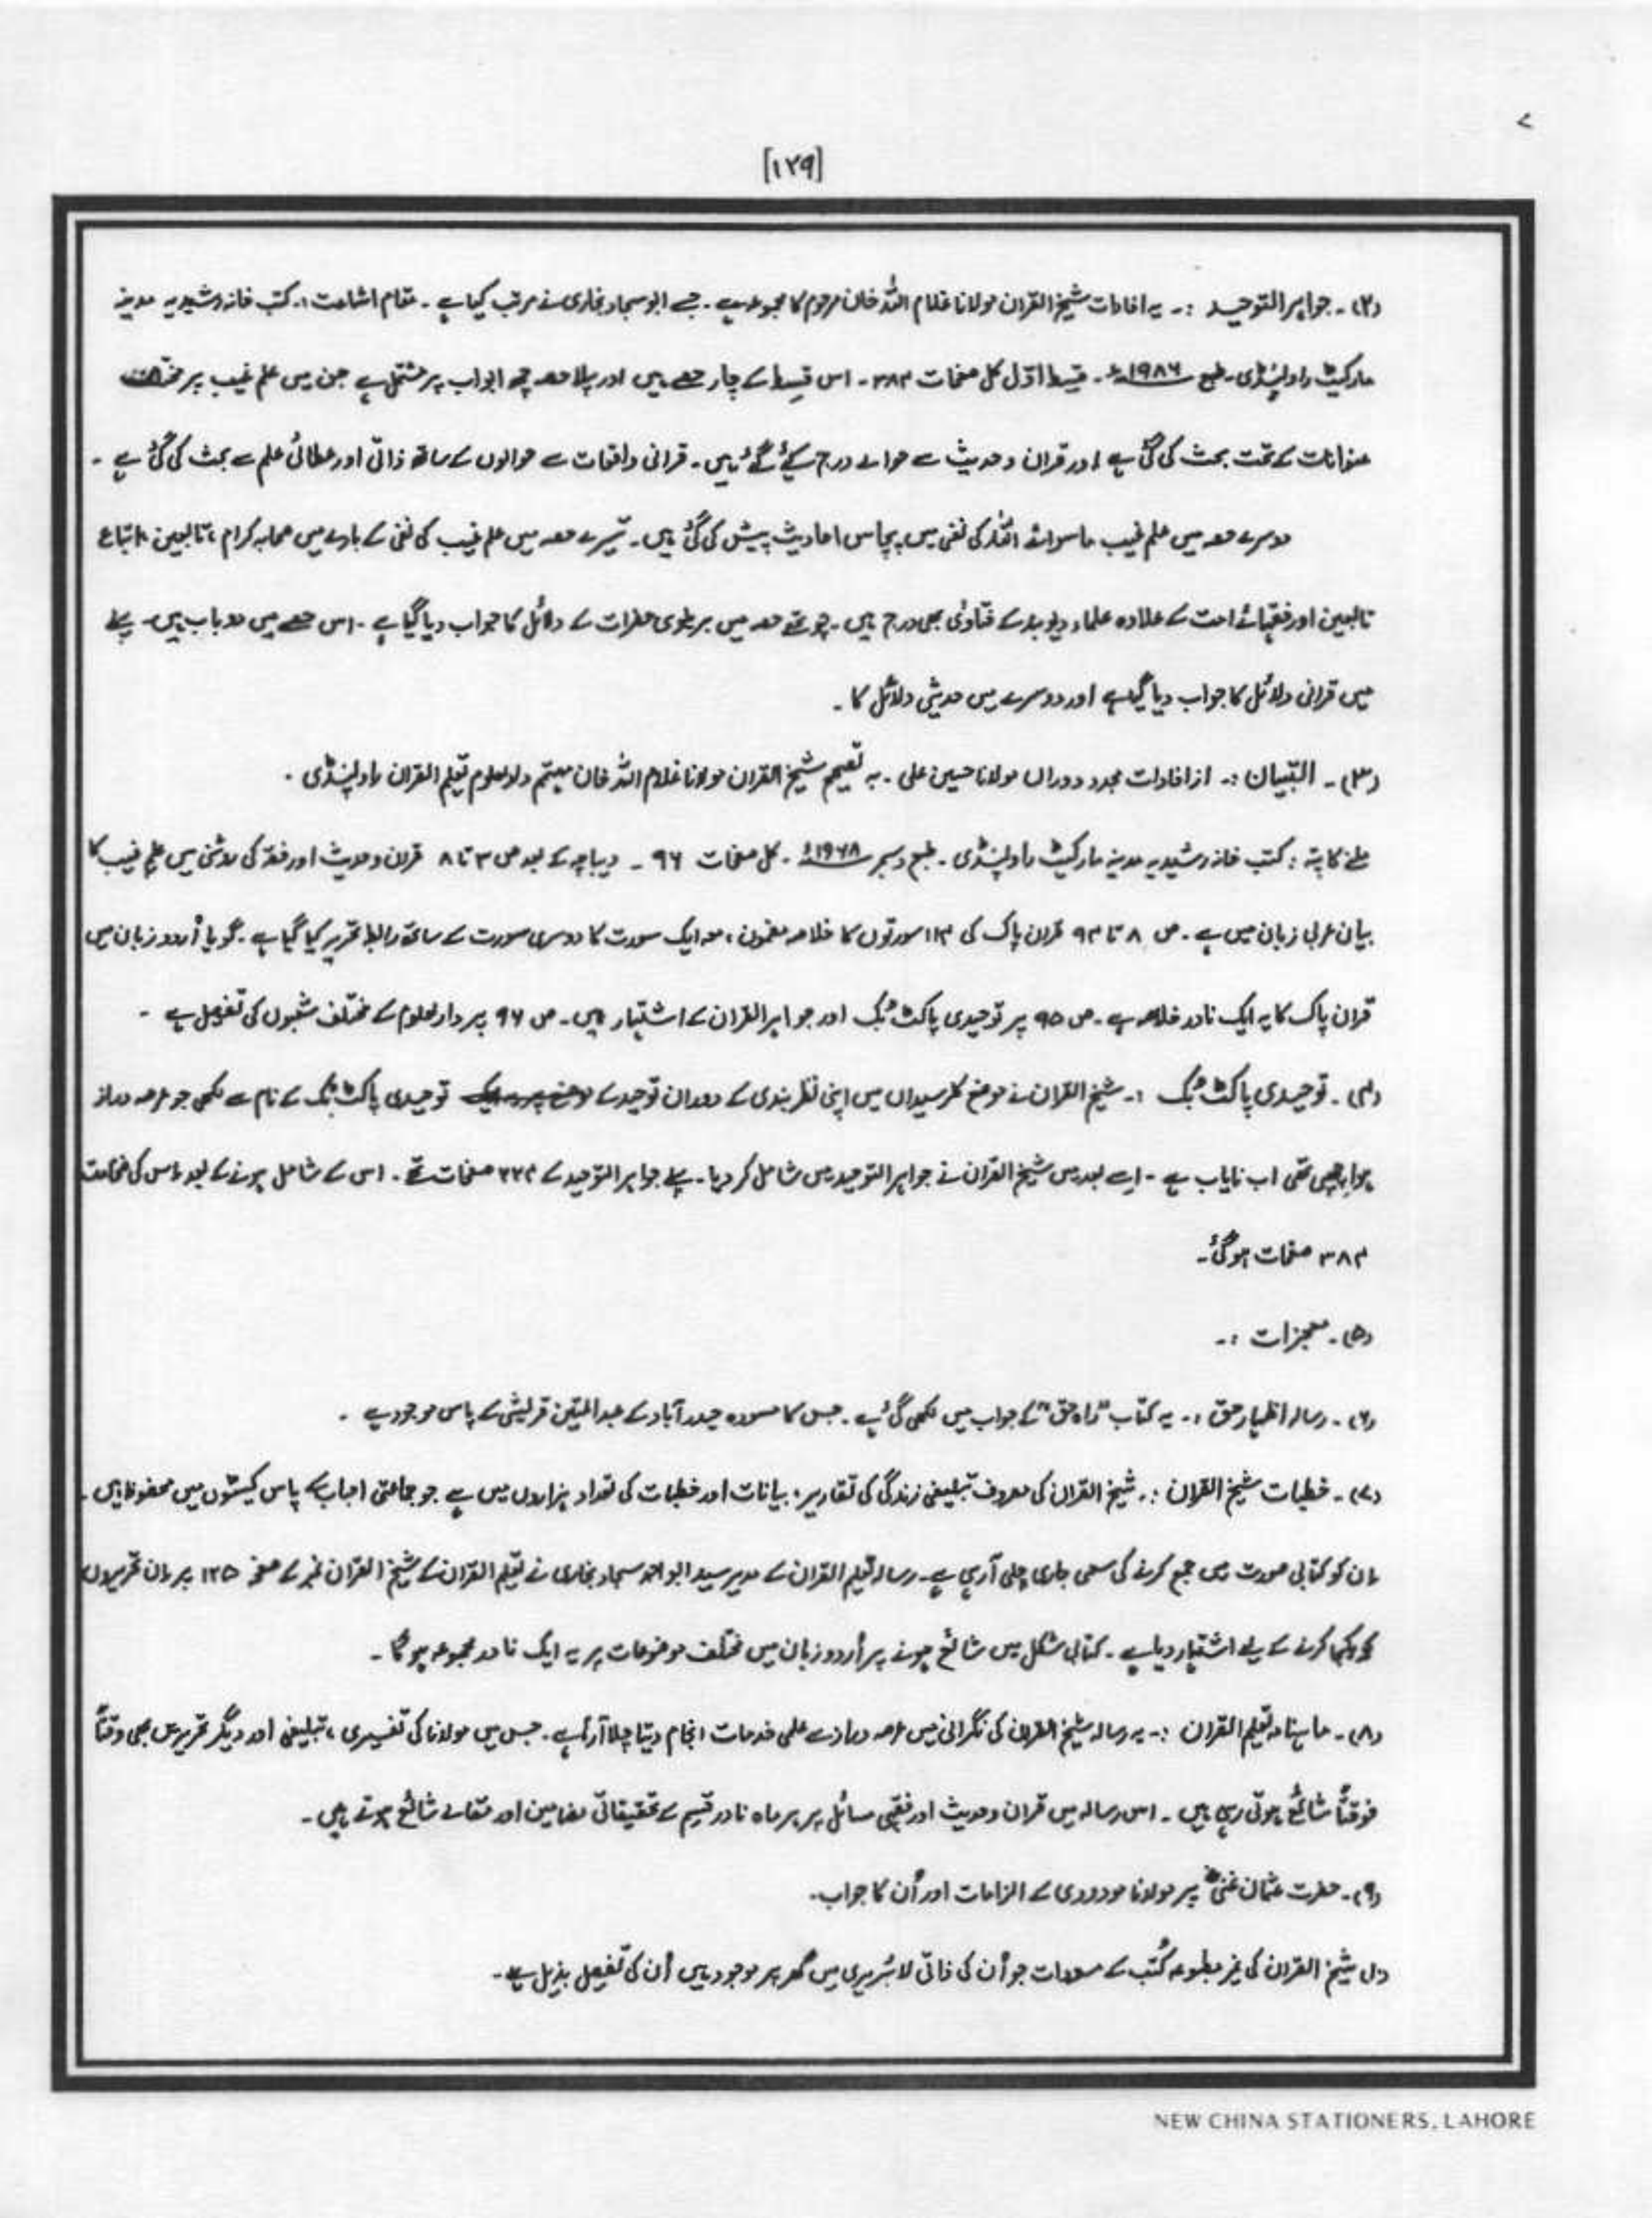 [۱۲۹]
(۲)۔ جواہر التوحید :۔ یہ افادات شیخ القرآن مولانا غلام اللہ خان مرحوم کا مجموعہ ہے۔ جسے ابو سجاد بخاری نے مرتب کیا ہے۔ مقام اشاعت :۔ کتب خانہ رشیدیہ مدینہ
مارکیٹ راولپنڈی۔ طبع ۱۹۸۶ء۔ قسط اوّل کل صفحات ۳۸۴۔ اس قسط کے چار حصے ہیں اور پہلا حصہ چھ ابواب پر مشتمل ہے جن میں علم غیب پر مختلف
عنوانات کے تحت بحث کی گئی ہے اور قرآن و حدیث سے حوالے درج کیے گئے ہیں۔ قرآنی واقعات سے حوالوں کے ساتھ ذاتی اور عطائی علم سے بحث کی گئی ہے۔
دوسرے حصہ میں علم غیب ماسوائے اللہ کی نفی میں پچاس احادیث پیش کی گئی ہیں۔ تیسرے حصہ میں علم غیب کی نفی کے بارے میں صحابہ کرام، تابعین، اتباع
تابعین اور فقہائے امت کے علاوہ علماء دیوبند کے فتاوٰی بھی درج ہیں۔ چوتھے حصہ میں بریلوی حضرات کے دلائل کا جواب دیا گیا ہے۔ اس حصے میں دو باب ہیں۔ پہلے
میں قرآنی دلائل کا جواب دیا گیا ہے اور دوسرے میں حدیثی دلائل کا۔
(۳)۔ التبیان :۔ از افادات مجدد دوراں مولانا حسین علی۔ بہ تصحیح شیخ القرآن مولانا غلام اللہ خان مہتمم دارالعلوم تعلیم القرآن راولپنڈی۔
ملنے کا پتہ : کتب خانہ رشیدیہ مدینہ مارکیٹ راولپنڈی۔ طبع دسمبر ۱۹۶۸ء۔ کل صفحات ۹۶۔ دیباچہ کے بعد ص ۳ تا ۸ قرآن و حدیث اور فقہ کی روشنی میں علم غیب کا
بیان عربی زبان میں ہے۔ ص ۸ تا ۹۴ قرآن پاک کی ۱۱۴ سورتوں کا خلاصہ مضمون، معہ ایک سورت کا دوسری سورت کے ساتھ رابطہ تحریر کیا گیا ہے۔ گویا اُردو زبان میں
قرآن پاک کا یہ ایک نادر خلاصہ ہے۔ ص ۹۵ پر توحیدی پاکٹ بُک اور جواہر القرآن کے اشتہار ہیں۔ ص ۹۶ پر دارالعلوم کے مختلف شعبوں کی تفصیل ہے۔
(۴)۔ توحیدی پاکٹ بُک :۔ شیخ القرآن نے موضع کلرسیداں میں اپنی نظر بندی کے دوران توحید کے توحیدی پاکٹ بُک کے نام سے لکھی جو عرصہ دراز
ہوا چھپی تھی اب نایاب ہے۔ اسے بعد میں شیخ القرآن نے جواہر التوحید میں شامل کر دیا۔ پہلے جواہر التوحید کے ۲۲۴ صفحات تھے۔ اس کے شامل ہونے کے بعد اس کی ضخامت
۳۸۴ صفحات ہو گئی۔
(۵)۔ معجزات :۔
(۶)۔ رسالہ اظہار حق :۔ یہ کتاب "راہ حق" کے جواب میں لکھی گئی ہے۔ جس کا مسودہ حیدر آباد کے عبدالمتین قریشی کے پاس موجود ہے۔
(۷)۔ خطبات شیخ القرآن :۔ شیخ القرآن کی معروف تبلیغی زندگی کی تقاریر، بیانات اور خطبات کی تعداد ہزاروں میں ہے جو جماعتی احباب کے پاس کیسٹوں میں محفوظ ہیں۔
ان کو کتابی صورت میں جمع کرنے کی سعی جاری چلی آ رہی ہے۔ رسالہ تعلیم القرآن کے مدیر سید ابو احمد سجاد بخاری نے تعلیم القرآن کے شیخ القرآن نمبر کے صفحہ ۱۲۵ پر ان تحریروں
کو یکجا کرنے کے لیے اشتہار دیا ہے۔ کتابی شکل میں شائع ہونے پر اُردو زبان میں مختلف موضوعات پر یہ ایک نادر مجموعہ ہو گا۔
(۸)۔ ماہنامہ تعلیم القرآن :۔ یہ رسالہ شیخ القرآن کی نگرانی میں عرصہ دراز سے علمی خدمات انجام دیتا چلا آ رہا ہے۔ جس میں مولانا کی تفسیری، تبلیغی اور دیگر تحریریں بھی وقتاً
فوقتاً شائع ہوتی رہی ہیں۔ اس رسالہ میں قرآن و حدیث اور فقہی مسائل پر ہر ماہ نادر قسم کے تحقیقاتی مضامین اور مقالے شائع ہوتے ہیں۔
(۹)۔ حضرت عثمان غنیؓ پر مولانا مودودی کے الزامات اور اُن کا جواب۔
شیخ القرآن کی غیر مطبوعہ کُتب کے مسودات جو اُن کی ذاتی لائبریری میں گھر پر موجود ہیں اُن کی تفصیل بذیل ہے۔
NEW CHINA STATIONERS, LAHORE